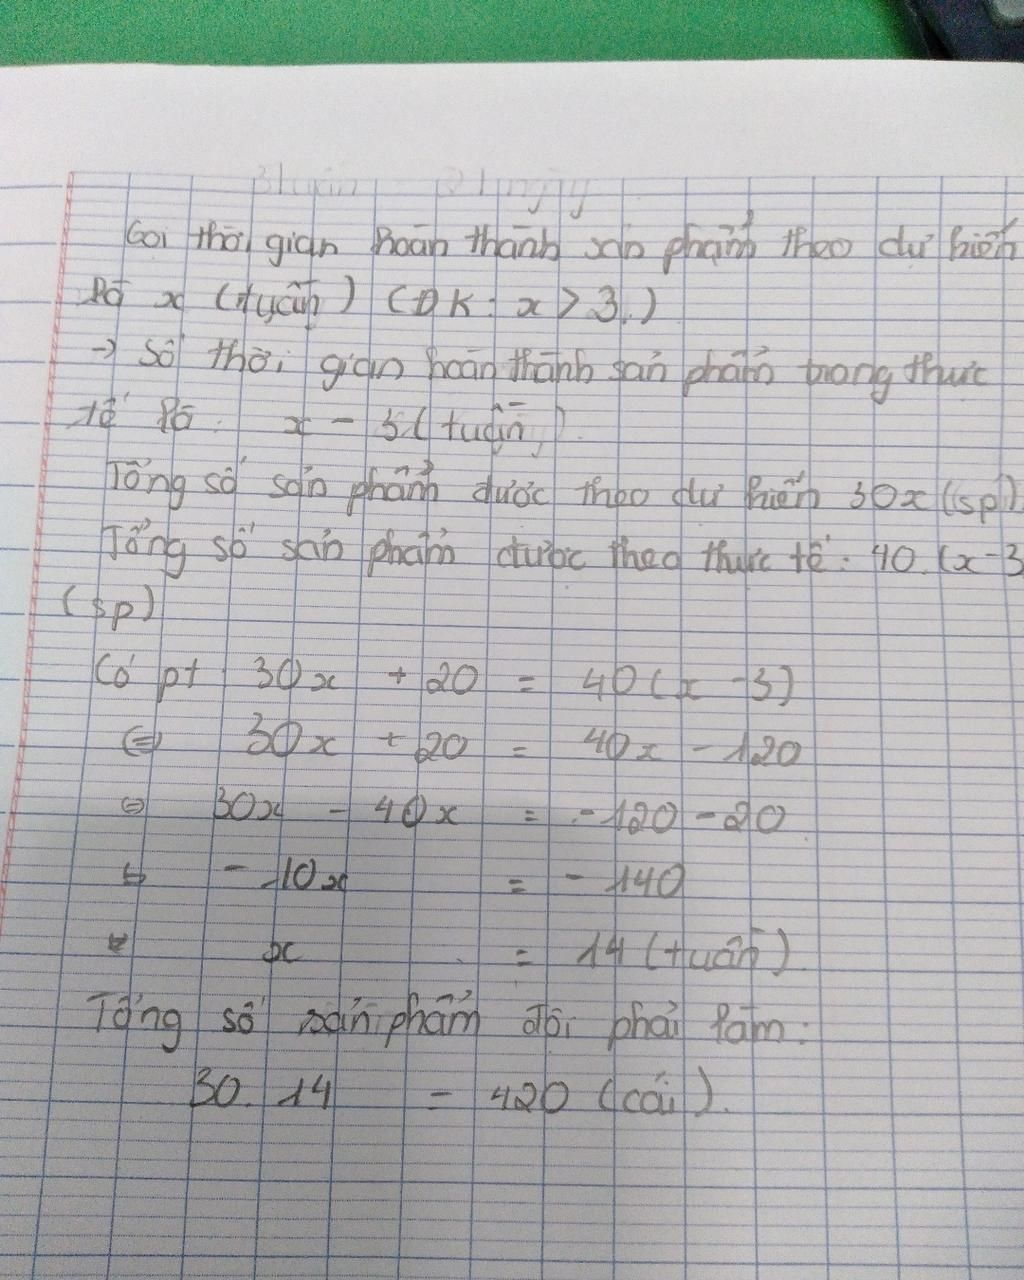 3 tuần 21 ngày
Gọi thời gian hoàn thành sản phẩm theo dự kiến
là x (tuần) (ĐK: x > 3.)
→ Số thời gian hoàn thành sản phẩm trong thực
tế là: x - 3 (tuần).
Tổng số sản phẩm được theo dự kiến 30x (sp)
Tổng số sản phẩm được theo thực tế: 40.(x-3
(sp)
Có pt 30x + 20 = 40(x - 3)
⇔ 30x + 20 = 40x - 120
⇔ 30x - 40x = -120 - 20
⇔ - 10x = - 140
⇔ x = 14 (tuần)
Tổng số sản phẩm đội phải làm:
30. 14 = 420 (cái).